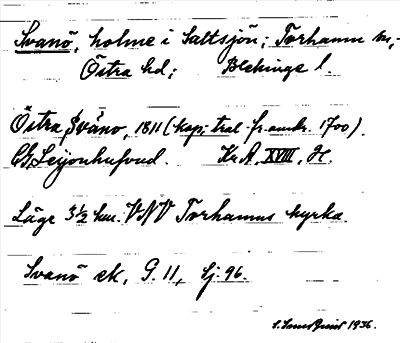 Svanö, holme i Saltsjön; Torhamn sn,
Östra hd; Blekinge l.
Östra Svänö, 1811 (kop; trol. fr. omkr. 1700).
CG Leijonhufvud. Kr A, XVIII, H.
Läge 3½ km. VNV Torhamns kyrka.
Svanö ek, G. 11, Lj. 96.
1936